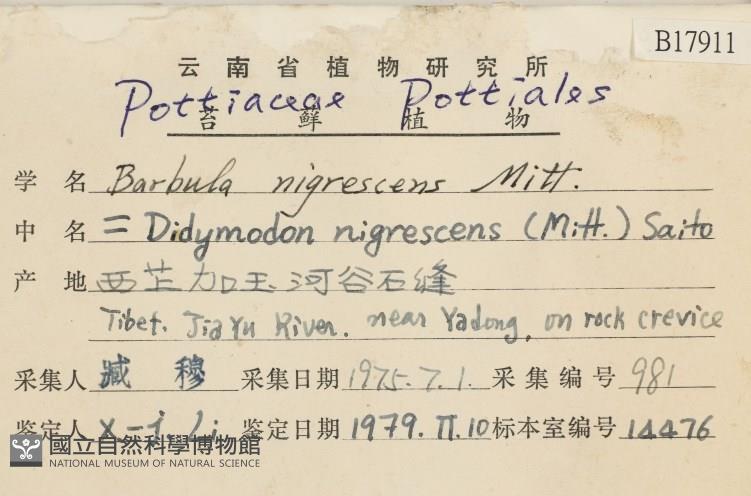 B17911
云南省植物研究所
Pottiaceae Pottiales
苔鲜植物
学名 Barbula nigrescens Mitt.
中名 = Didymodon nigrescens (Mitt.) Saito
产地 西芷加玉河谷石缝
Tibet. JiaYu River. near Yadong, on rock crevice
采集人 臧穆 采集日期 1975.7.1. 采集编号 981
鉴定人 X-j. Li 鉴定日期 1979.II.10 标本室编号 14476
國立自然科學博物館
NATIONAL MUSEUM OF NATURAL SCIENCE